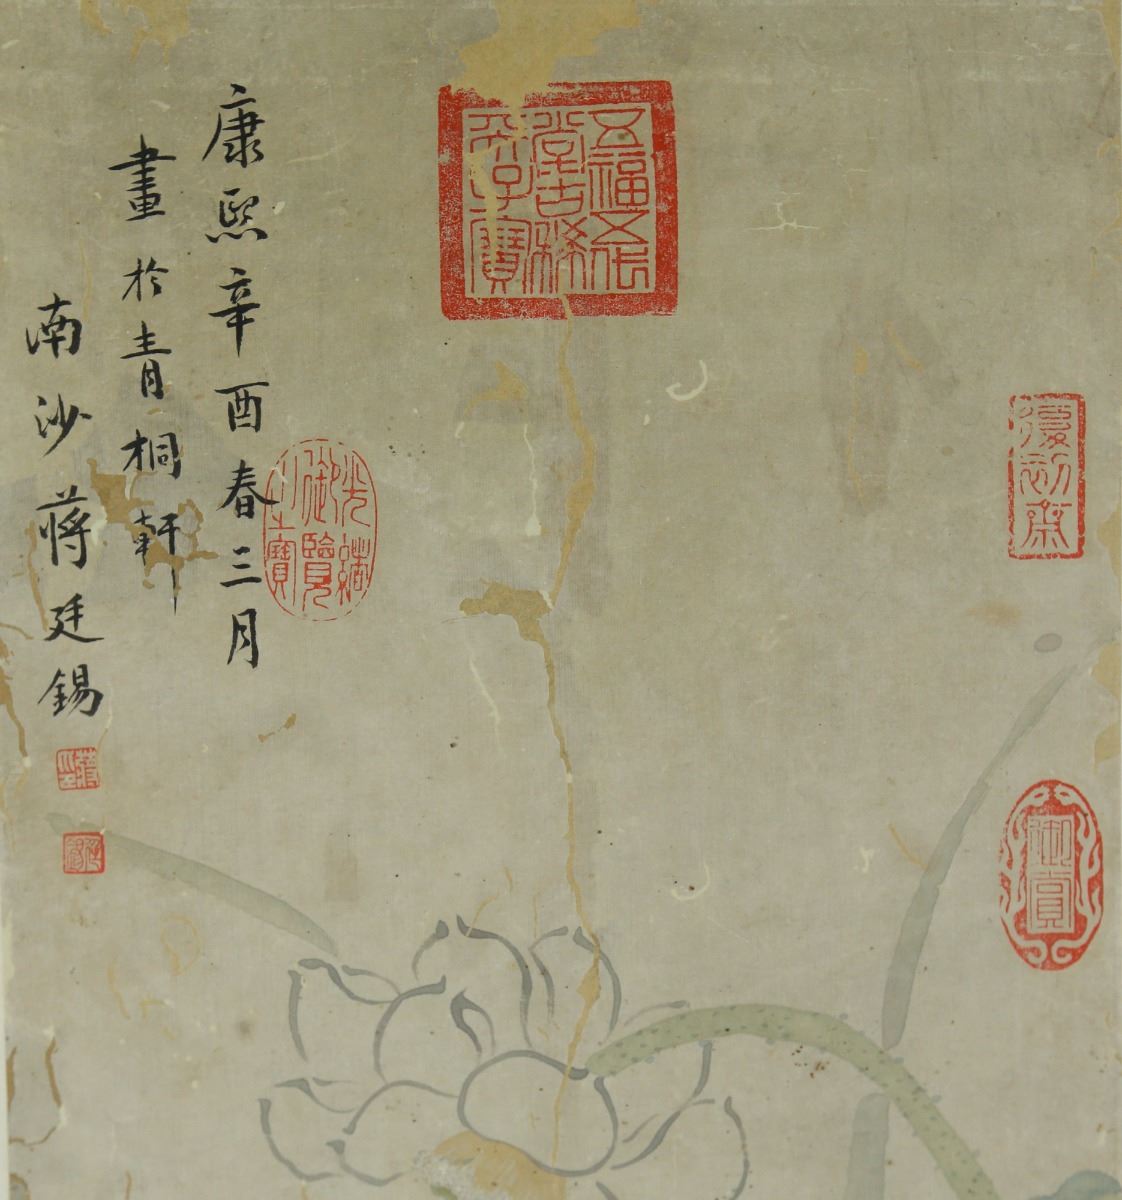 康熙辛酉春三月
畫於青桐軒
南沙蔣廷錫
五福五代
堂古稀
天子寶
光緒
御覽
之寶
御賞